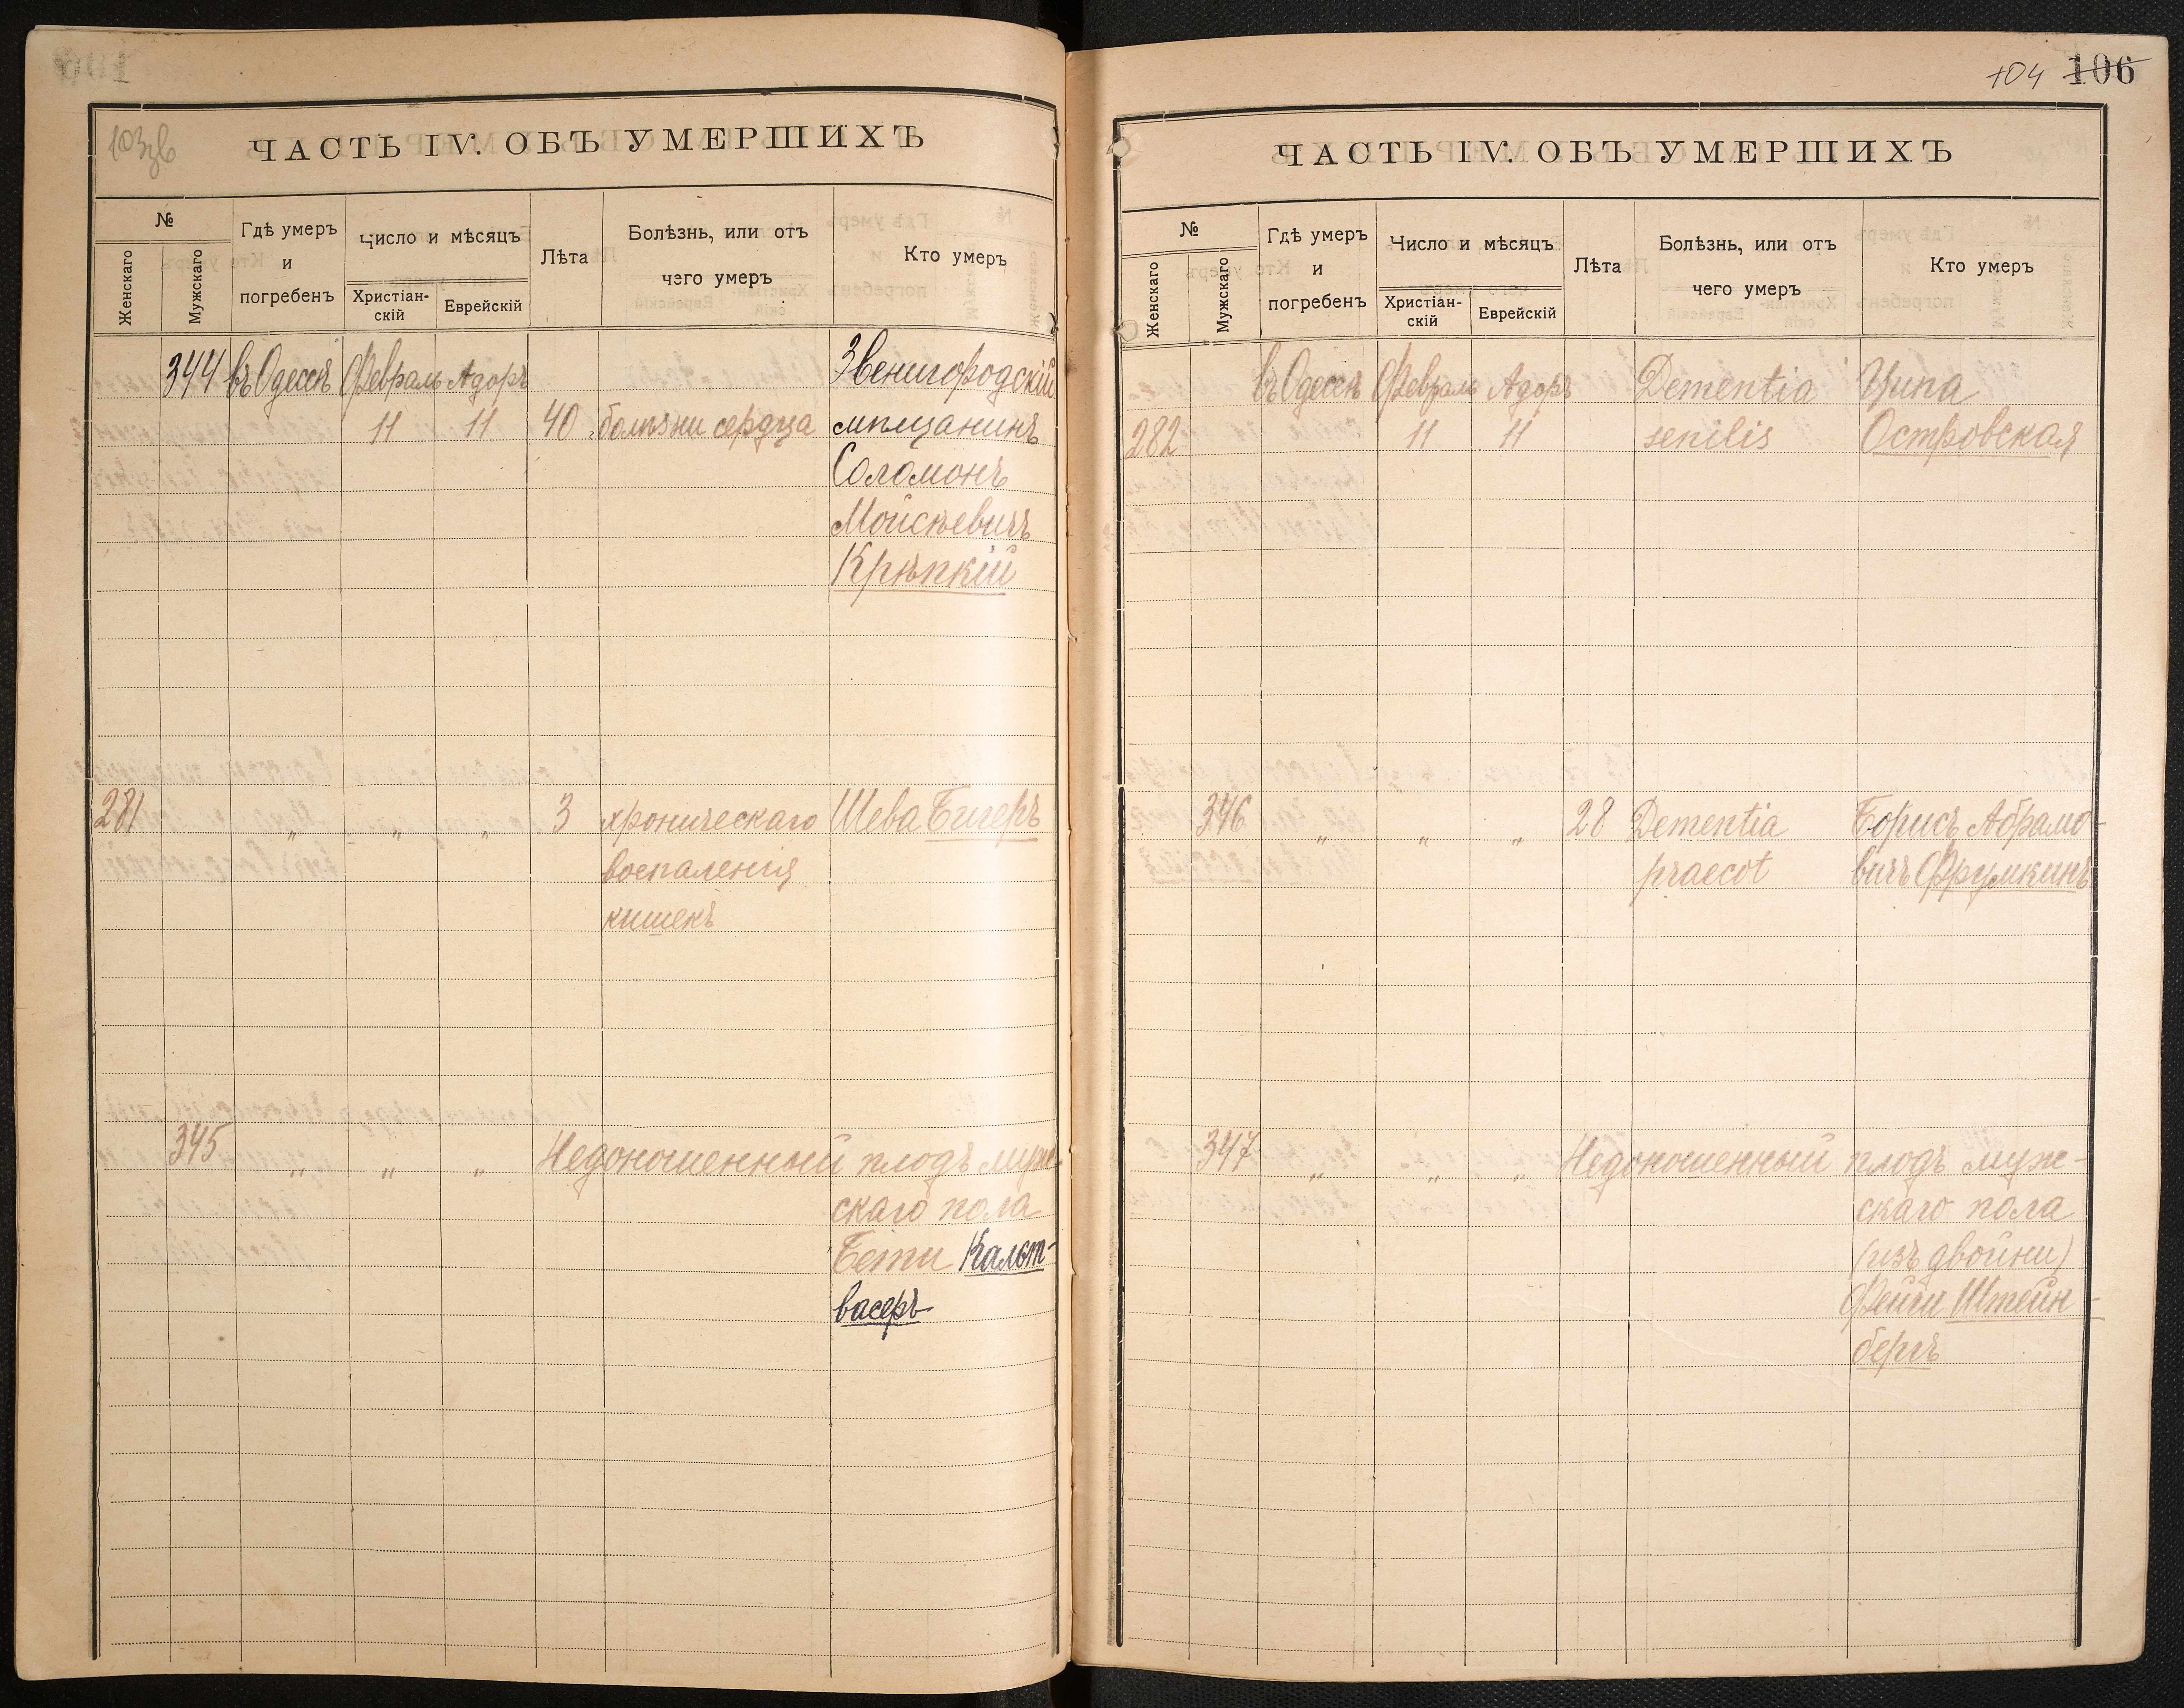 103зв
ЧАСТЬ IV. ОБЪ УМЕРШИХЪ
№
Женскаго
Мужскаго
Гдѣ умеръ
и
погребенъ
Число и мѣсяцъ
Христіан-
скій
Еврейскій
Лѣта
Болѣзнь, или отъ
чего умеръ
Кто умеръ
344 въ Одессѣ Февраль Адоръ Звенигородскій
11 11 40 болѣзни сердца мѣщанинъ
Соломонъ
Мойсѣевичъ
Крѣпкій
281 " " " 3 хроническаго Шева Бигеръ
воспаленія
кишекъ
345 " " " Недоношенный плодъ муж-
скаго пола
Бети Кальт-
васеръ
104 106
ЧАСТЬ IV. ОБЪ УМЕРШИХЪ
№
Женскаго
Мужскаго
Гдѣ умеръ
и
погребенъ
Число и мѣсяцъ
Христіан-
скій
Еврейскій
Лѣта
Болѣзнь, или отъ
чего умеръ
Кто умеръ
въ Одессѣ Февраль Адоръ Dementia Ципа
282 11 11 senilis Островская
346 " " " 28 Dementia Борисъ Абрамо-
praecot вичъ Фрумкинъ
347 " " " Недоношенный плодъ муж-
скаго пола
(изъ двойни)
Фейги Штейн-
бергъ